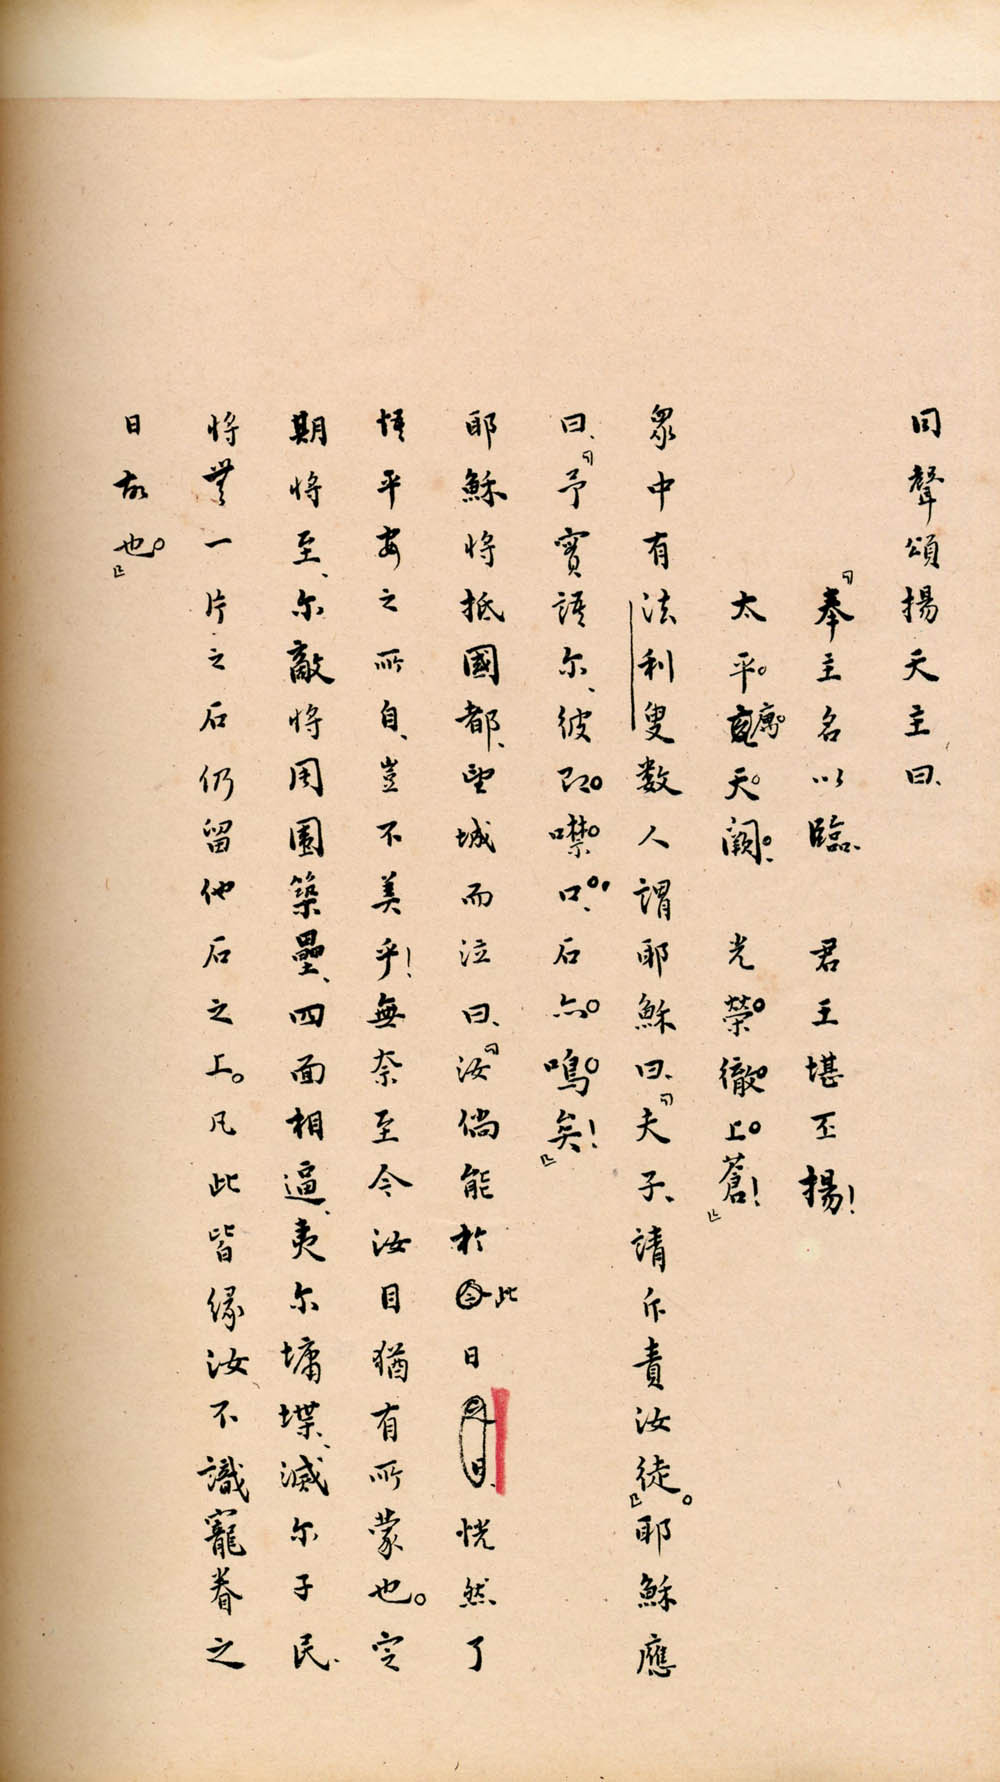 同聲頌揚天主曰、
「奉主名以臨、君王堪丕揚！
太平。寓天。闕。、光榮。徹。上。蒼！」
眾中有法利叟数人謂耶穌曰、「夫子、請斥責汝徒」。耶穌應
曰、「予實語尔、彼即。噤。口。、石亦。鳴。矣！」
耶穌将抵國都、望城而泣曰、「汝倘能於此日恍然了
悟平安之所自、豈不美乎！無奈至今汝目猶有所蒙也。定
期将至、尔敵将周圍築壘、四面相逼、夷尔墉堞、滅尔子民、
将無一片之石仍留他石之上。凡此皆緣汝不識寵眷之
日故也。」